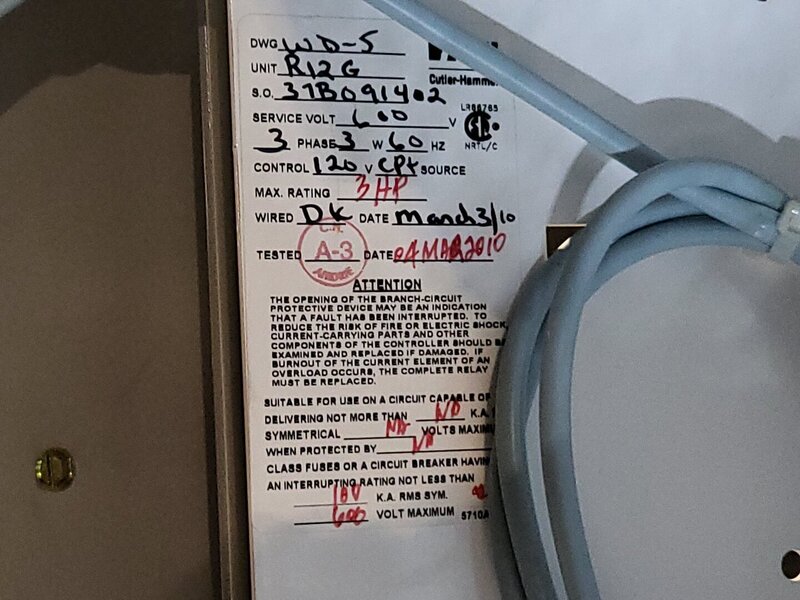 DWG WD-5
UNIT R12G
Cutler-Hamme
S.O. 37B091402
LR68765
SERVICE VOLT 600 V
NRTL/C
3 PHASE 3 W 60 HZ
CONTROL 120 V CPt SOURCE
MAX. RATING 3 HP
WIRED DK DATE March 3/10
TESTED A-3 DATE 04 MAR 2010
ATTENTION
THE OPENING OF THE BRANCH-CIRCUIT
PROTECTIVE DEVICE MAY BE AN INDICATION
THAT A FAULT HAS BEEN INTERRUPTED. TO
REDUCE THE RISK OF FIRE OR ELECTRIC SHOCK,
CURRENT-CARRYING PARTS AND OTHER
COMPONENTS OF THE CONTROLLER SHOULD BE
EXAMINED AND REPLACED IF DAMAGED. IF
BURNOUT OF THE CURRENT ELEMENT OF AN
OVERLOAD OCCURS, THE COMPLETE RELAY
MUST BE REPLACED.
SUITABLE FOR USE ON A CIRCUIT CAPABLE OF
DELIVERING NOT MORE THAN K.A.
SYMMETRICAL NA VOLTS MAXIM
WHEN PROTECTED BY NA
CLASS FUSES OR A CIRCUIT BREAKER HAVIN
AN INTERRUPTING RATING NOT LESS THAN
K.A. RMS SYM.
600 VOLT MAXIMUM 5710A